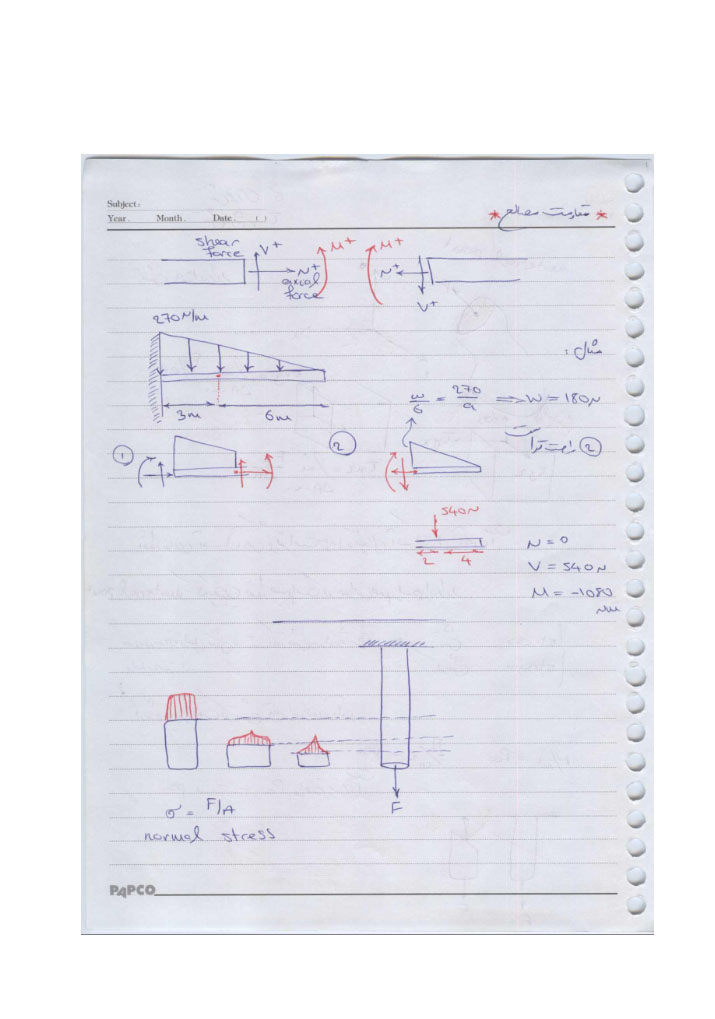 Subject:
Year. Month. Date. ( )
* مقاومت مصالح *
shear force V+ N+ axial force M+ M+ N+ V+
270 N/m
مثال:
3m 6m
w/6 = 270/9 => W = 180N
1 2
2 راحت تر است
540N
2 4
N = 0
V = 540N
M = -1080
NM
F
σ = F/A
normal stress
PAPCO